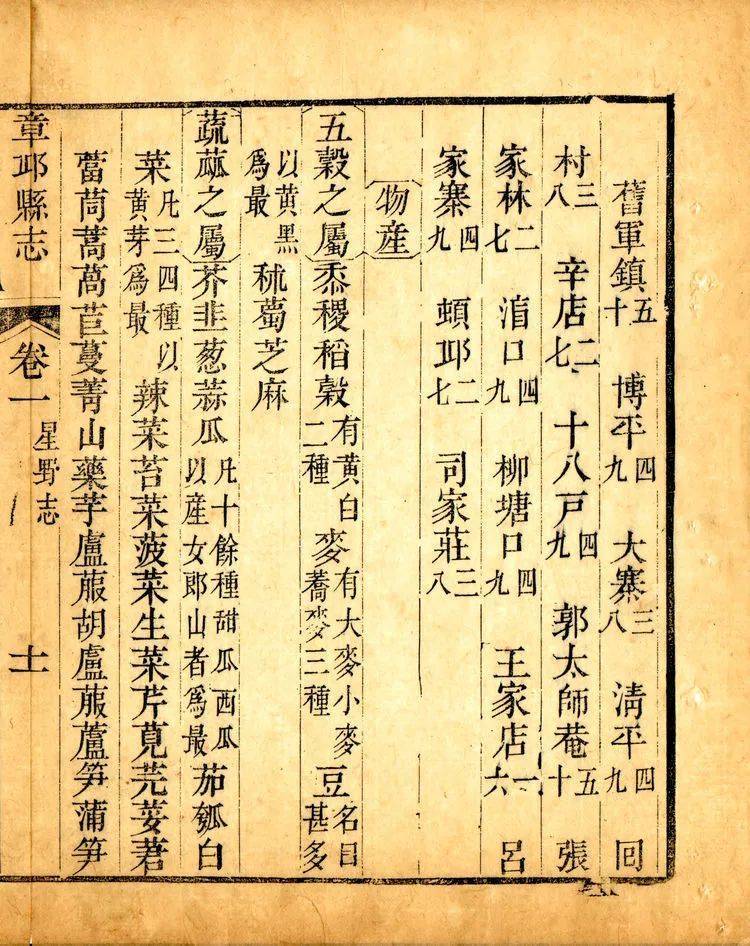 舊軍鎮五十 博平四九 大寨三八 淸平四九 回
村三八 辛店二七 十八戸四九 郭太師菴五十 張
家林二七 口四九 柳塘口四九 王家店一六 呂
家寨四九 頓邱二七 司家莊三八
物産
五穀之屬 黍稷稻穀有黄白二種 麥有大麥小麥蕎麥三種 豆名目甚多
以黄黑爲最 秫芝麻
蔬蓏之屬 芥韭葱蒜瓜凡十餘種甜瓜西瓜以産女郎山者爲最 茄瓠白
菜凡三四種以黄芽爲最 辣菜苔菜菠菜生菜芹莧芫荽莙
茼蒿萵苣蔓菁山藥芋盧菔胡盧菔蘆笋蒲笋
章邱縣志 卷一 星野志 十一